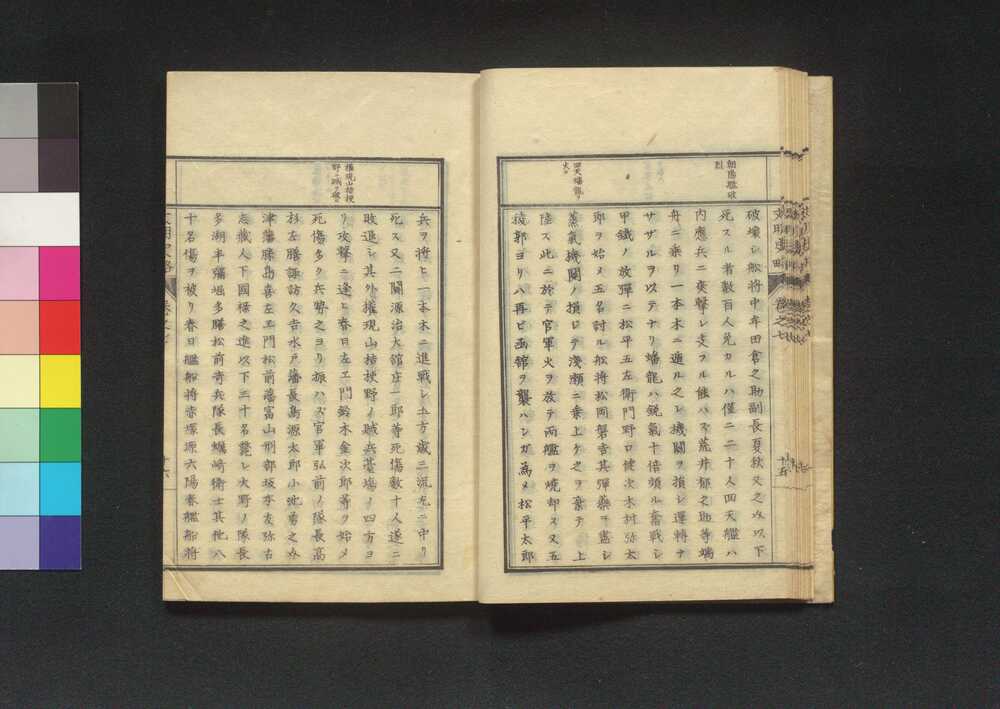 朝陽艦破
烈
四天蟠龍ヲ
火ク
破壊シ舩将中牟田倉之助副長夏秋又之助以下
死スル者数百人免カルハ僅ニ二十人四天艦ハ
内應兵ニ夾撃レ支フル能ハス荒井郁之助等端
舟ニ乗リ一本木ニ遁ル之レ機關ヲ損シ運轉セ
サザルヲ以テナリ蟠龍ハ鋭氣十倍頻ル奮戦シ
甲鐵ノ放彈ニ松平五左衛門野口健次木村弥太
郎ヲ始メ五名討ル舩将松岡磐吉其弾藥ヲ盡シ
蒸氣機關ノ損シテ浅瀬ニ乗上ケ之ヲ棄テ上
陸ス此ニ於テ官軍火ヲ放テ両艦ヲ焼却ス又五
稜郭ヨリハ再ビ函館ヲ襲ハンガ為メ松平太郎
權現山桔梗
野ノ賊ヲ撃ツ
兵ヲ将ヒ一本木ニ進戦シ土方歳三流丸ニ中リ
死ス又二關源治大館庄一郎等死傷数十人遂ニ
敗退シ其外權現山桔梗野ノ賊兵臺場ノ四方ヨ
リ攻撃ニ逢ヒ春日左エ門鈴木金次郎等ヲ始メ
死傷多ク兵勢之ヨリ振ハズ官軍弘前ノ隊長高
杉左膳諏訪久吉水戸藩長島源太郎小池勇之助
津藩藤島喜左エ門松前藩富山刑部坂本友弥右
志藏人下國禄之進以下二十名斃レ大野ノ隊長
多湖半藏堀多膳松前奇兵隊長蠣崎衛士其他八
十名傷ヲ被リ春日艦舩将赤塚源六陽春艦舩将
巻之七
十五